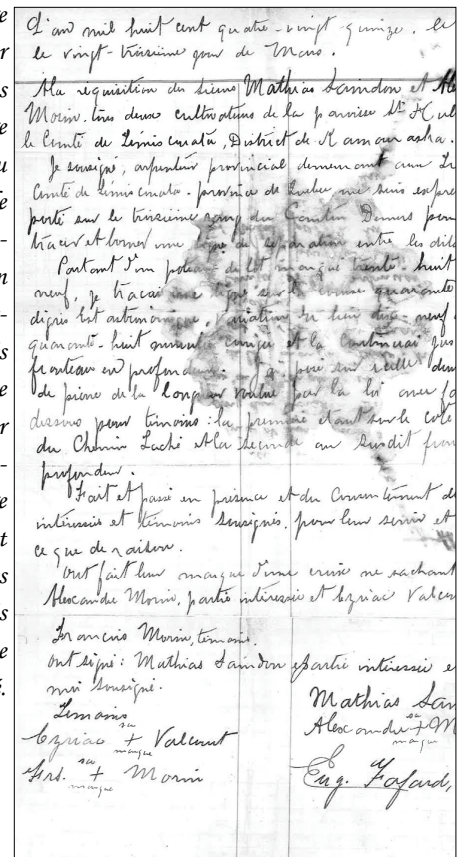 L'an mil huit cent quatre-vingt-quinze, le
le vingt-troisième jour de Mars.
A la requisition des sieurs Mathias Saindon et Ale
Morin, tous deux cultivateurs de la paroisse St Hub
le Comté de Témiscouata, District de Kamouraska.
Je soussigné, arpenteur provincial demeurant aux Tr
Comté de Témiscouata, province de Québec me suis expre
porté sur le troisième rang du Canton Demers pour
tracer et borner une ligne de séparation entre les dits
Partant d'un poteau de lot marqué trente huit
neuf, je traçai une ligne sur la course quarante
degrés Est astronomique, variation du lieu dix-neuf
quarante-huit minutes et la continuai jus
fronteau en profondeur. J'ai posé sur icelle deux
de pierre de la longueur voulue par la loi avec
dessous pour témoins: la première étant sur le côté
du Chemin Taché et la seconde au susdit fron
profondeur.
Fait et passé en présence et du Consentement d
intéressés et témoins soussignés, pour leur servir et
ce que de raison.
Ont fait leur marque d'une croix ne sachant
Alexandre Morin, partie intéressée et Ezriac Valcou
Francois Morin, témoins.
Ont signé: Mathias Saindon partie intéressée e
moi soussigné.
Témoins
Mathias Sain
Ezriac + Valcourt
sa
marque
Alexandre + M
sa
marque
Frs. + Morin
sa
marque
Eug. Fafard,